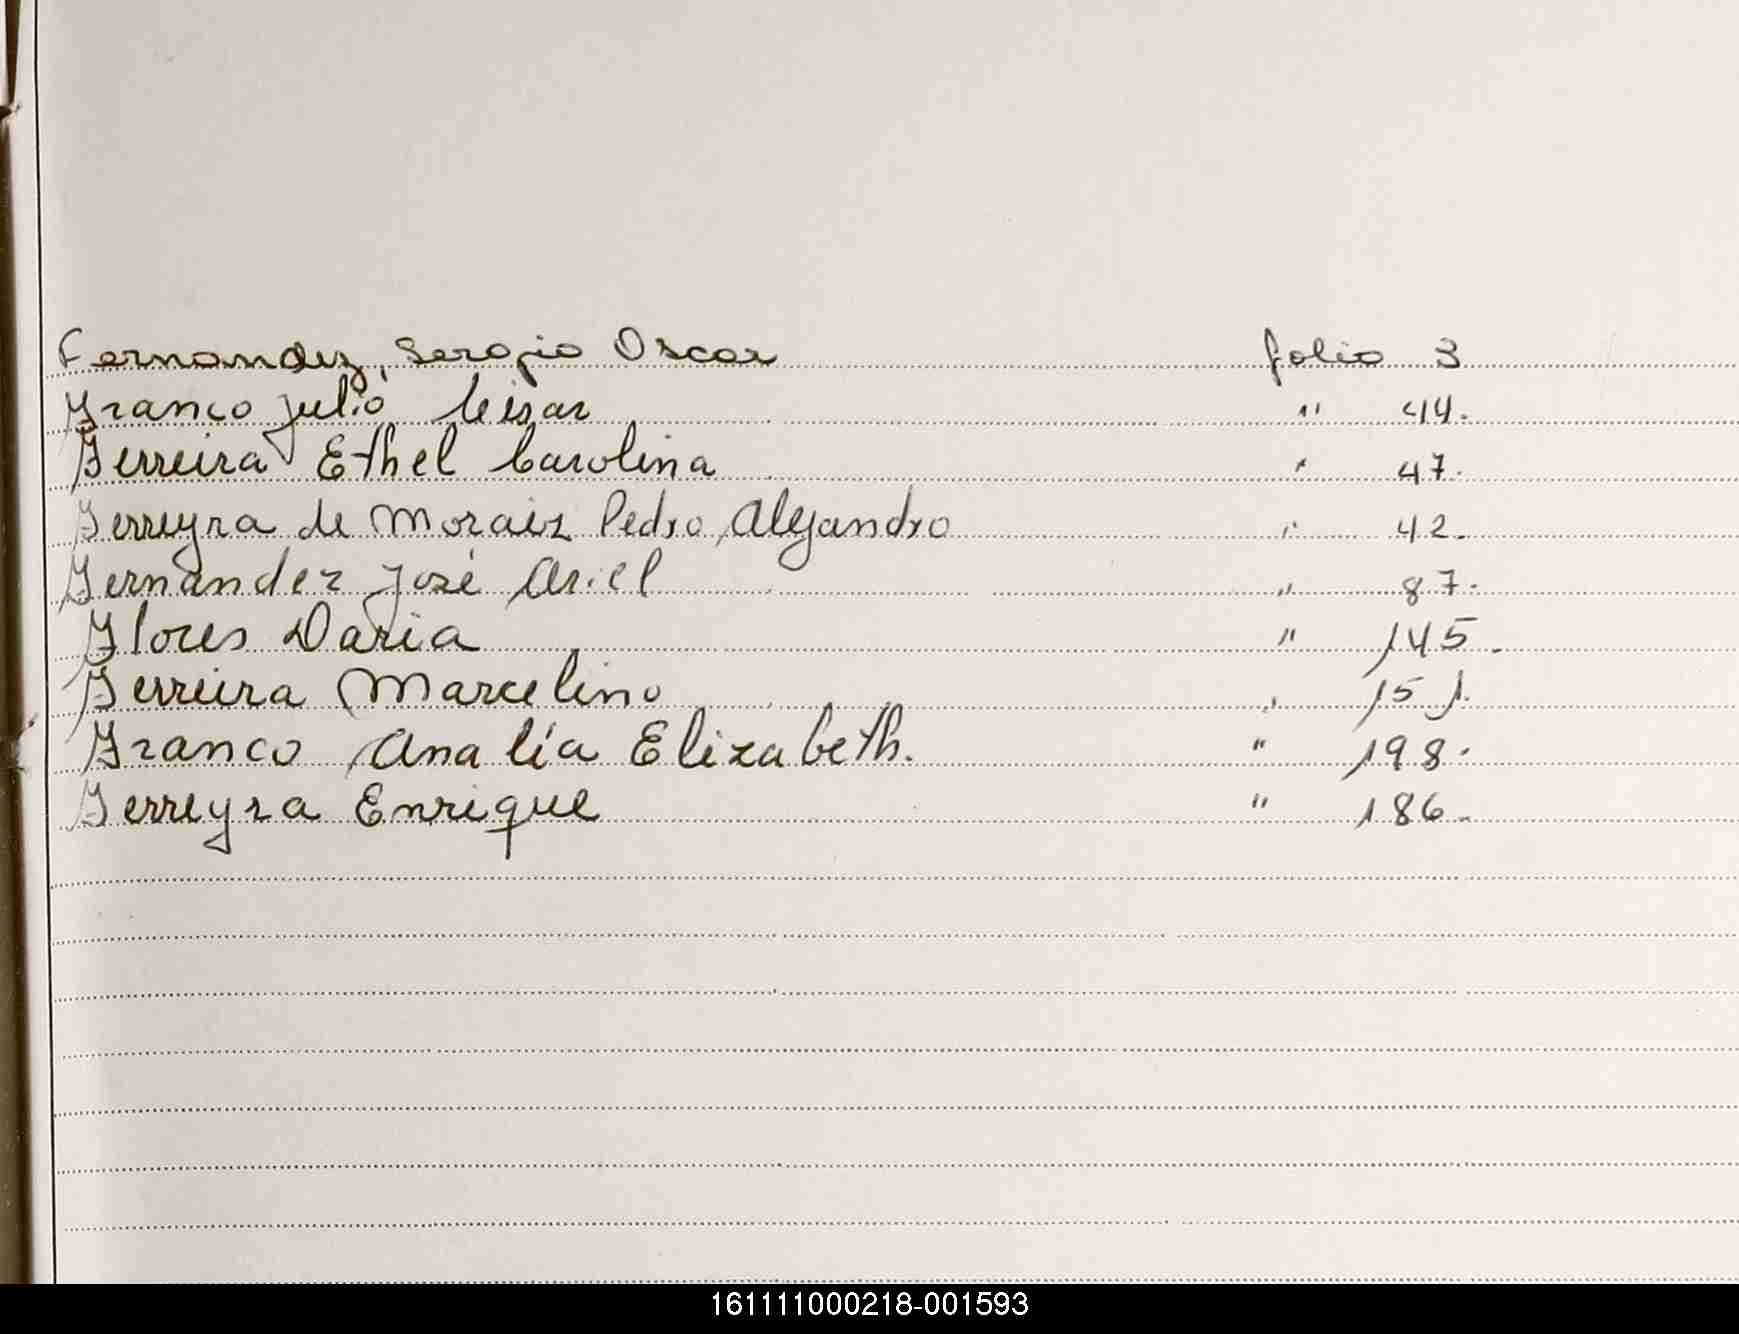 Fernandez, Sergio Oscar folio 3
Franco Julio César " 44.
Ferreira Ethel Carolina " 47.
Ferreyra de Moraiz Pedro Alejandro " 42.
Fernandez José Ariel " 87.
Flores Daria " 145.
Ferreira Marcelino " 151.
Franco Analía Elizabeth. " 198.
Ferreyra Enrique " 186.
161111000218-001593